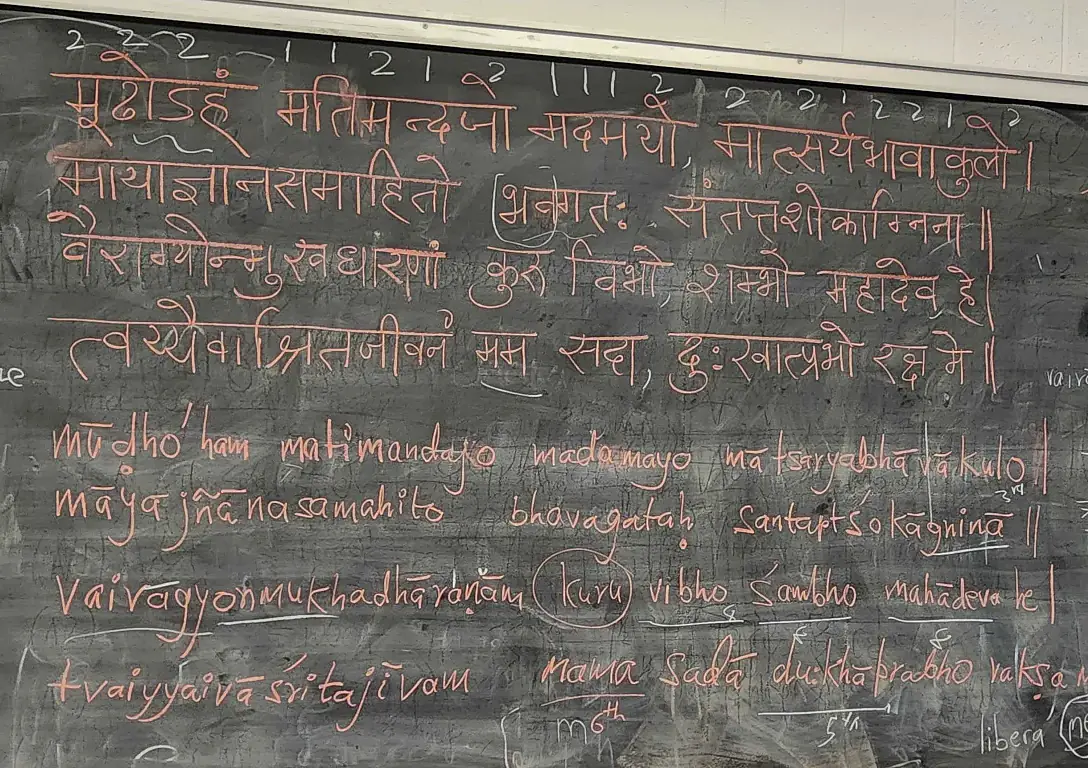 2 2 2 1 1 2 1 2 1 1 1 2 2 2 1 2 2 1 2
मूढोऽहं मतिमन्दजो मदमयो, मात्सर्यभावाकुलो।
मायाज्ञानसमाहितो भवगतः संतप्तशोकाग्निना॥
वैराग्योन्मुखधारणां कुरु विभो, शम्भो महादेव हे|
त्वय्यैवाश्रितजीवनं मम सदा, दुःखात्प्रभो रक्ष मे॥
mūḍho'ham matimandajo madamayo mātsaryabhāvākulo|
māyajñānasamahito bhavagataḥ santaptśokāgninā ||
3rd
Vairāgyonmukhadhāraṇām kuru vibho śambho mahādeva he|
8 8 8
tvaiyyaivāśritajīvam mama sadā duḥkhātprabho rakṣa m
m 6th 5th
libera